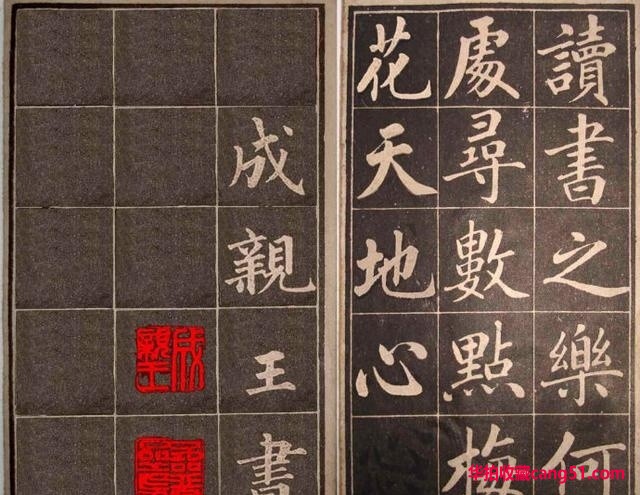 讀書之樂何
處尋數點梅
花天地心
成親王書
成親王
华伯收藏cang51.com